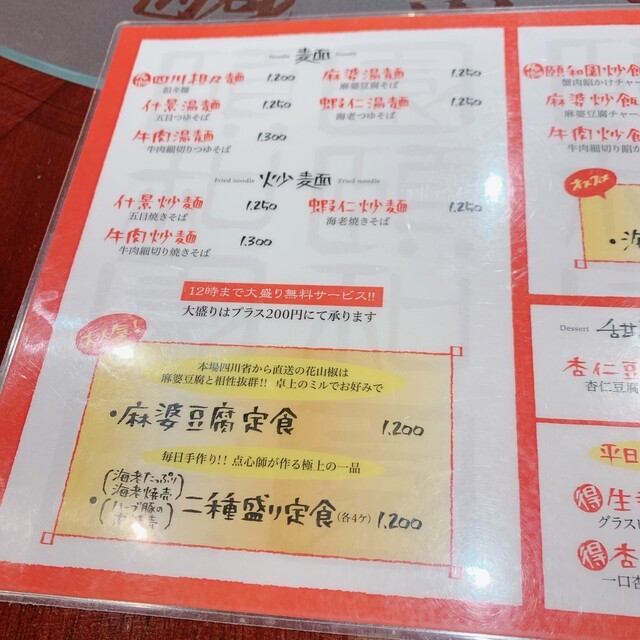 Noodle 麺麺 Noodle
四川担々麺 1.200
担々麺
麻婆湯麺 1.250
麻婆豆腐そば
什景湯麺 1.250
五目つゆそば
蝦仁湯麺 1.250
海老つゆそば
牛肉湯麺 1.300
牛肉細切りつゆそば
Fried noodle 炒麺 Fried noodle
什景炒麺 1.250
五目焼きそば
蝦仁炒麺 1.250
海老焼きそば
牛肉炒麺 1.300
牛肉細切り焼きそば
12時まで大盛り無料サービス!!
大盛りはプラス200円にて承ります
大人気!
本場四川省から直送の花山椒は
麻婆豆腐と相性抜群!! 卓上のミルでお好みで
・麻婆豆腐定食 1.200
毎日手作り!! 点心師が作る極上の一品
(海老たっぷり海老焼売)
(ハーブ豚の
・二種盛り定食(各4ケ) 1.200
頤和園炒飯
蟹肉餡かけチャー
麻婆炒飯
麻婆豆腐チャー
牛肉炒飯
牛肉細切り餡か
オススメ
・海
Dessert 甜
杏仁豆
杏仁豆腐
平日
得 生
グラス
得 杏
一口杏